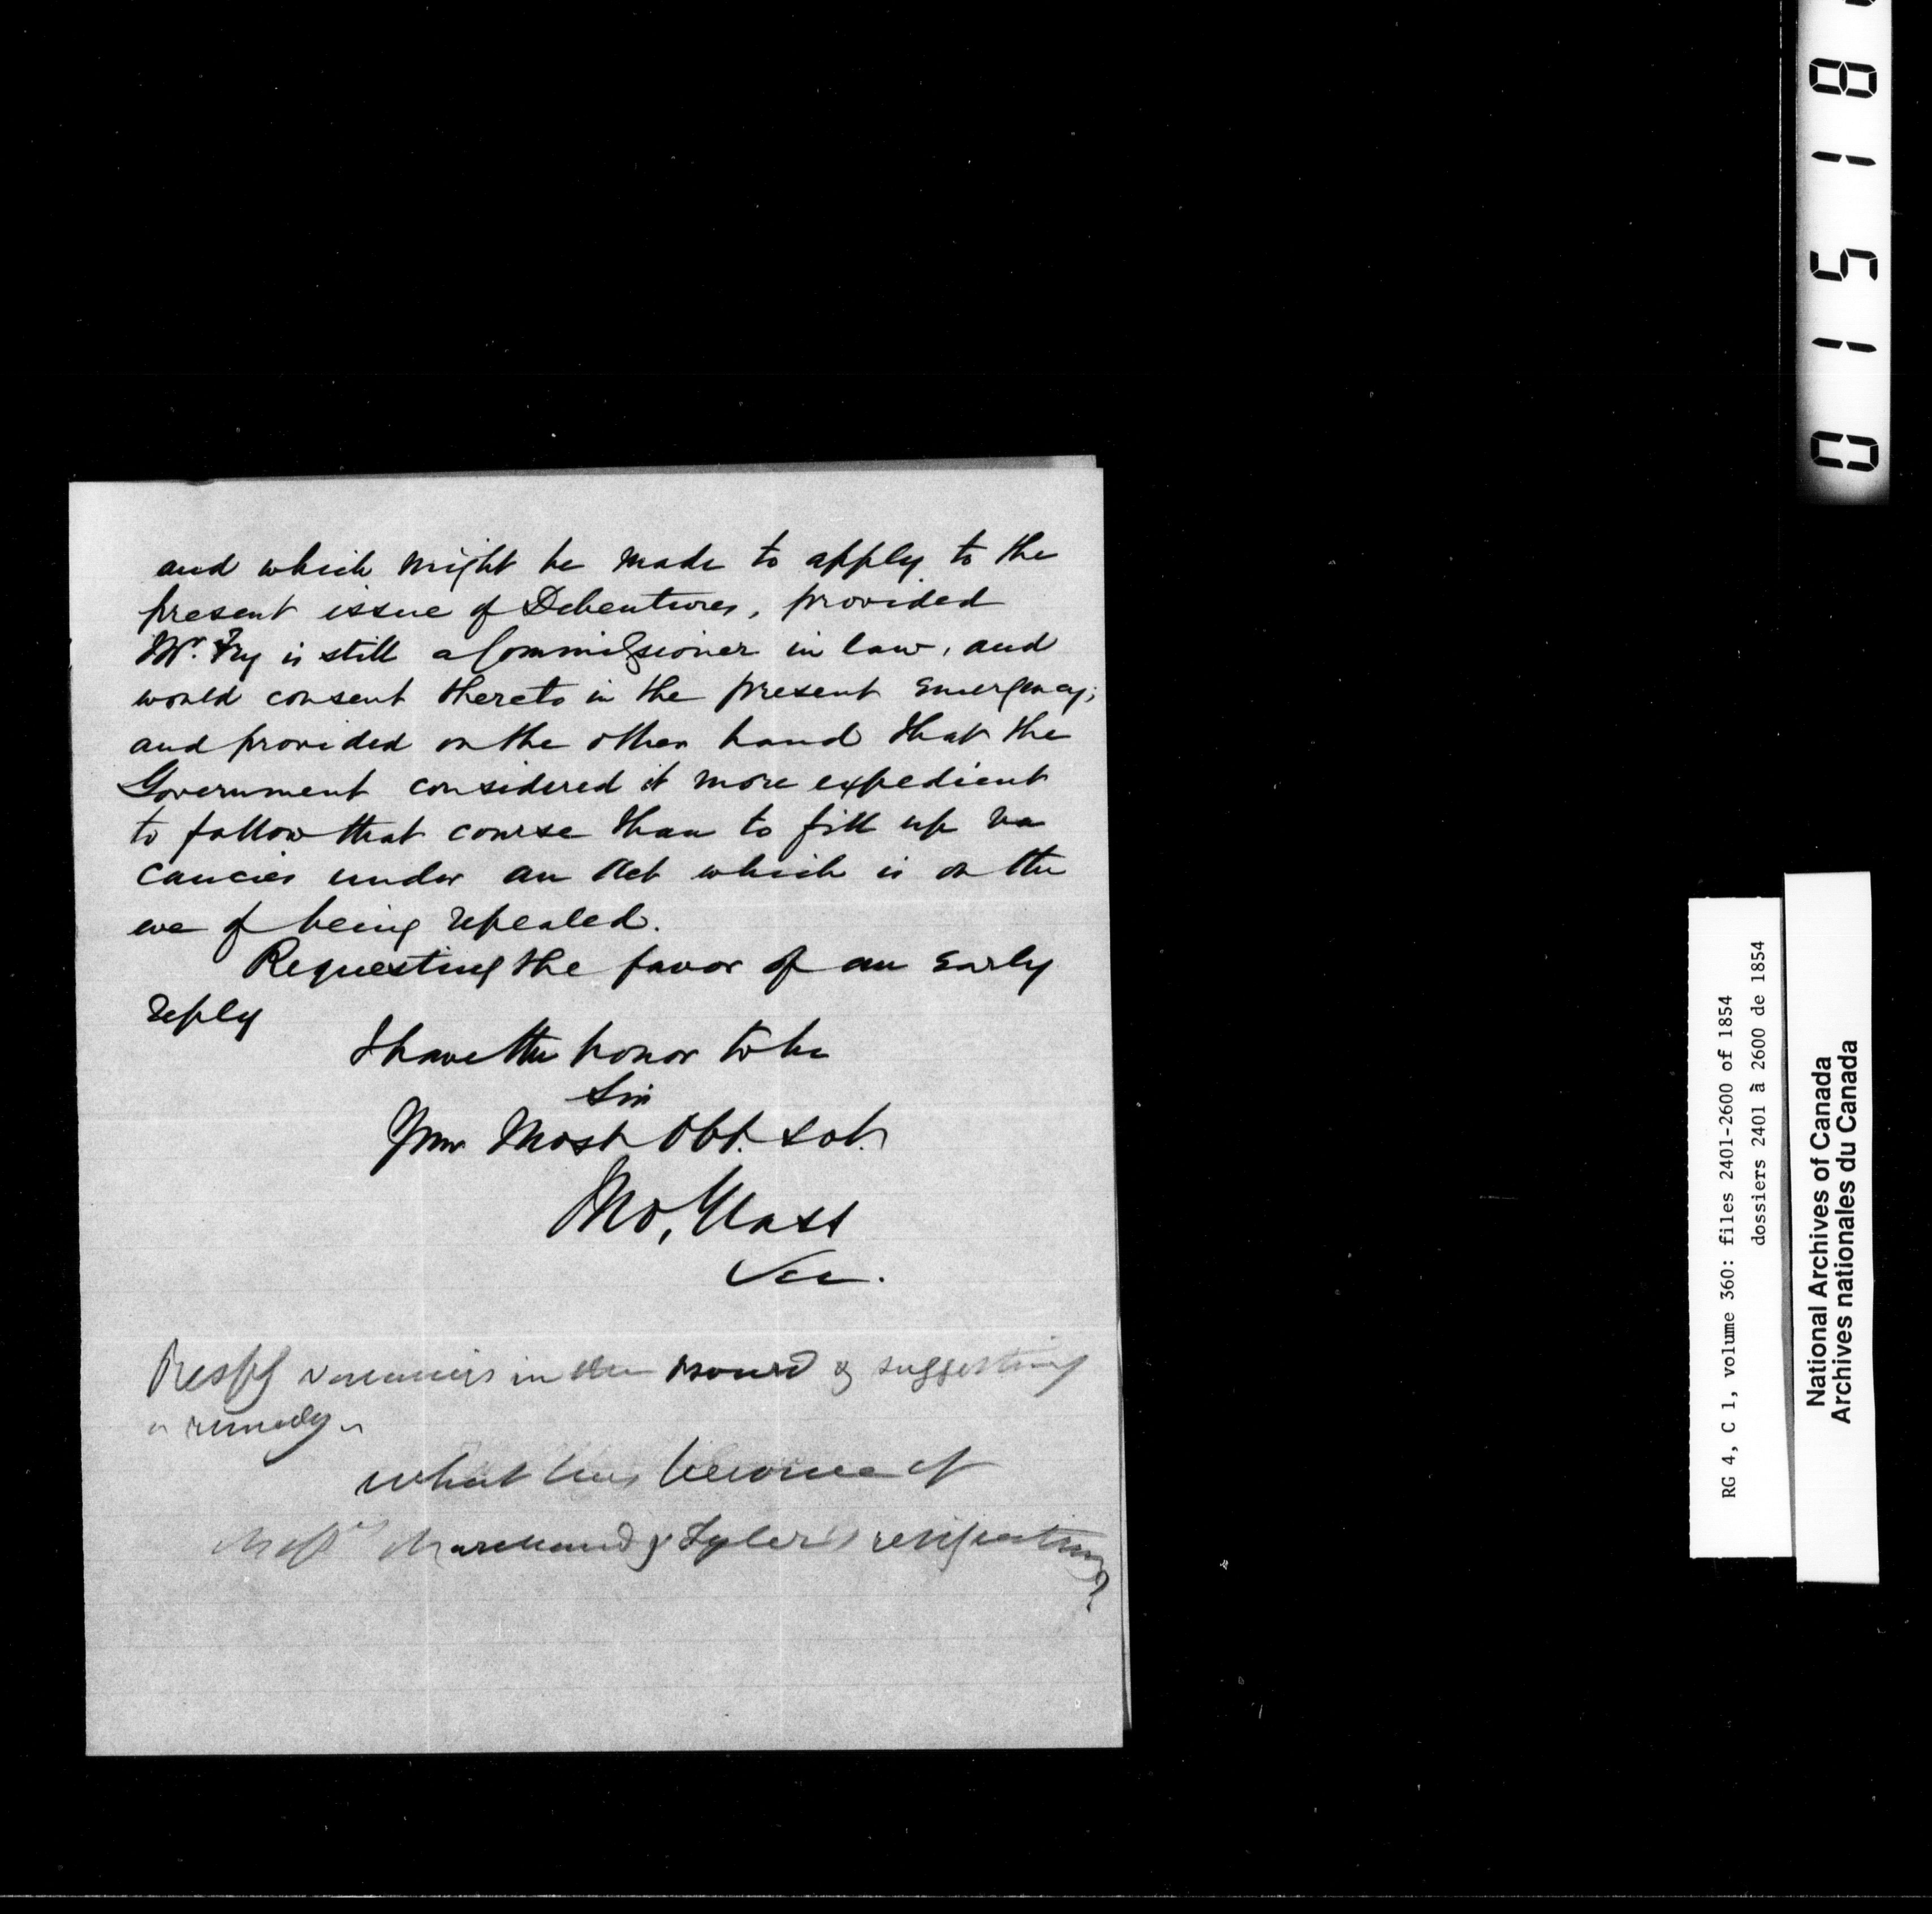 and which might be made to apply to the
present issue of Debentures, provided
Mr. Fry is still a Commissioner in law, and
would consent thereto in the present emergency;
and provided on the other hand that the
Government considered it more expedient
to follow that course than to fill up va
cancies under an Act which is on the
eve of being repealed.
Requesting the favor of an early
reply
I have the honor to be
Sir
Your Most Obt. Sot.
Jno, Glass
Sec.
Respg vacancies in the Board & suggesting
a remedy
What has become of
Messrs Marchand & Tyler's resignations?
01518
RG 4, C 1, volume 360: files 2401-2600 of 1854
dossiers 2401 à 2600 de 1854
National Archives of Canada
Archives nationales du Canada